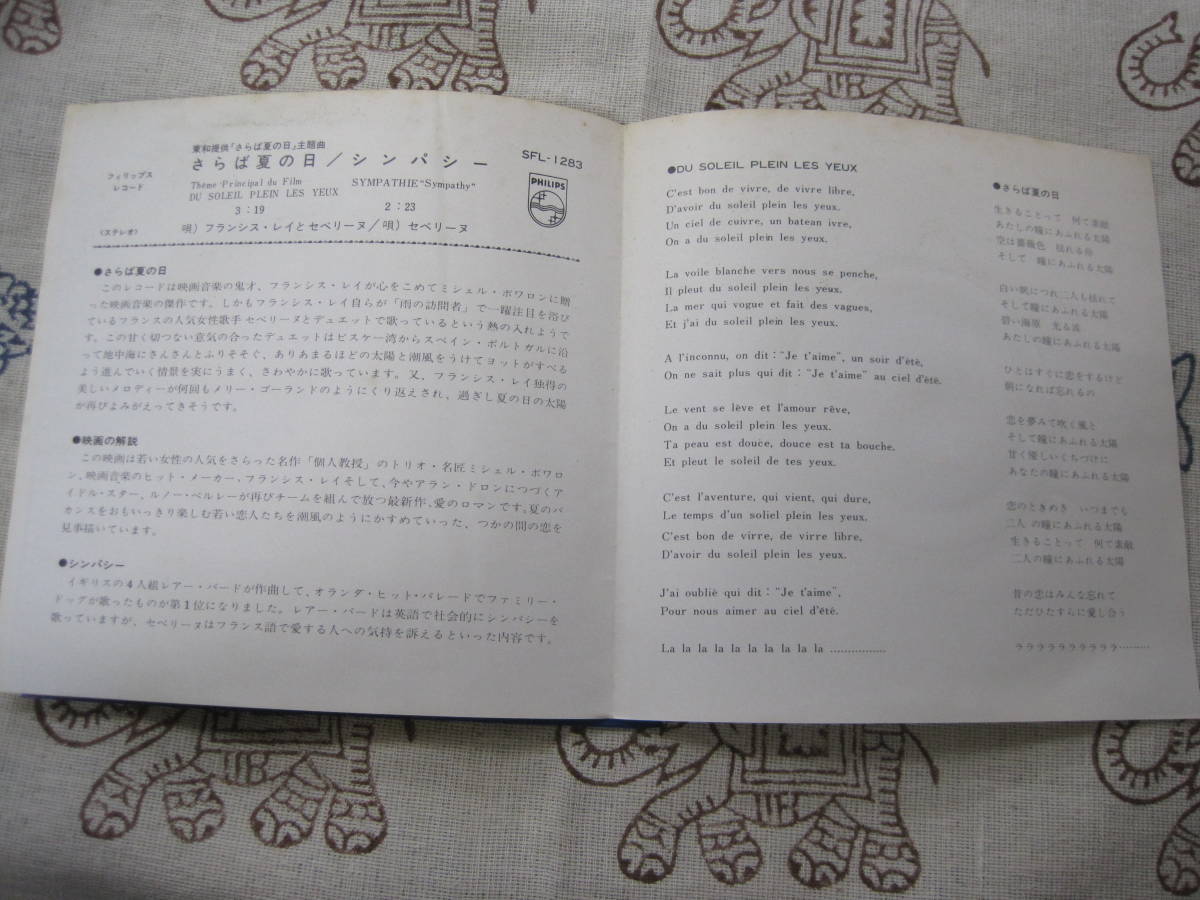 東和提供「さらば夏の日」主題曲
さらば夏の日／シンパシー
SFL-1283
フィリップス
レコード
Thème Principal du Film
DU SOLEIL PLEIN LES YEUX
SYMPATHIE "Sympathy"
PHILIPS
3：19
2：23
〈ステレオ〉
唄）フランシス・レイとセベリーヌ／唄）セベリーヌ
●さらば夏の日
このレコードは映画音楽の鬼才、フランシス・レイが心をこめてミシェル・ボワロンに贈
った映画音楽の傑作です。しかもフランシス・レイ自らが「雨の訪問者」で一躍注目を浴び
ているフランスの人気女性歌手セベリーヌとデュエットで歌っているという熱の入れようで
す。この甘く切つない意気の合ったデュエットはビスケー湾からスペイン・ポルトガルに沿
って地中海にさんさんとふりそそぐ、ありあまるほどの太陽と潮風をうけてヨットがすべる
よう進んでいく情景を実にうまく、さわやかに歌っています。又、フランシス・レイ独得の
美しいメロディーが何回もメリー・ゴーランドのようにくり返えされ、過ぎし夏の日の太陽
が再びよみがえってきそうです。
●映画の解説
この映画は若い女性の人気をさらった名作「個人教授」のトリオ・名匠ミシェル・ボワロ
ン、映画音楽のヒット・メーカー、フランシス・レイそして、今やアラン・ドロンにつづくア
イドル・スター、ルノー・ベルレーが再びチームを組んで放つ最新作、愛のロマンです。夏のバ
カンスをおもいっきり楽しむ若い恋人たちを潮風のようにかすめていった、つかの間の恋を
見事描いています。
●シンパシー
イギリスの4人組レアー・バードが作曲して、オランダ・ヒット・パレードでファミリー・
ドッグが歌ったものが第1位になりました。レアー・バードは英語で社会的にシンパシーを
歌っていますが、セベリーヌはフランス語で愛する人への気持を訴えるといった内容です。
●DU SOLEIL PLEIN LES YEUX
C'est bon de vivre, de vivre libre,
D'avoir du soleil plein les yeux.
Un ciel de cuivre, un batean ivre,
On a du soleil plein les yeux.
La voile blanche vers nous se penche,
Il pleut du soleil plein les yeux.
La mer qui vogue et fait des vagues,
Et j'ai du soleil plein les yeux.
A l'inconnu, on dit："Je t'aime", un soir d'étè,
On ne sait plus qui dit："Je t'aime" au ciel d'été.
Le vent se lève et l'amour rêve,
On a du soleil plein les yeux.
Ta peau est douce, douce est ta bouche.
Et pleut le soleil de tes yeux.
C'est l'aventure, qui vient, qui dure,
Le temps d'un soliel plein les yeux.
C'est bon de virre, de virre libre,
D'avoir du soleil plein les yeux.
J'ai oublié qui dit："Je t'aime",
Pour nous aimer au ciel d'été.
La la la la la la la la la la ................
●さらば夏の日
生きることって　何て素敵
あたしの瞳にあふれる太陽
空は薔薇色　揺れる舟
そして　瞳にあふれる太陽
白い帆につれ二人も揺れて
そして瞳にあふれる太陽
碧い海原　光る波
あたしの瞳にあふれる太陽
ひとはすぐに恋をするけど
朝になれば忘れるの
恋を夢みて吹く風と
そして瞳にあふれる太陽
甘く優しいくちづけに
あなたの瞳にあふれる太陽
恋のときめき　いつまでも
二人の瞳にあふれる太陽
生きることって　何て素敵
二人の瞳にあふれる太陽
昔の恋はみんな忘れて
ただひたすらに愛し合う
ラララララララララ………